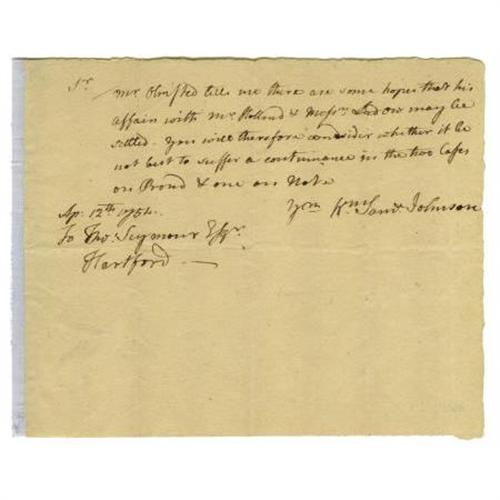 Sr.
Mr. Olmsted tells me there are some hopes that his
affair with Mr. Holland & Messrs. Ladow may be
settled. You will therefore consider whether it be
not best to suffer a continuance in the two Cases
on Bond & one on Note
Yrs. Wm. Saml. Johnson
Ap. 12th. 1754.
To Tho: Seymour Esqr.
Hartford. —